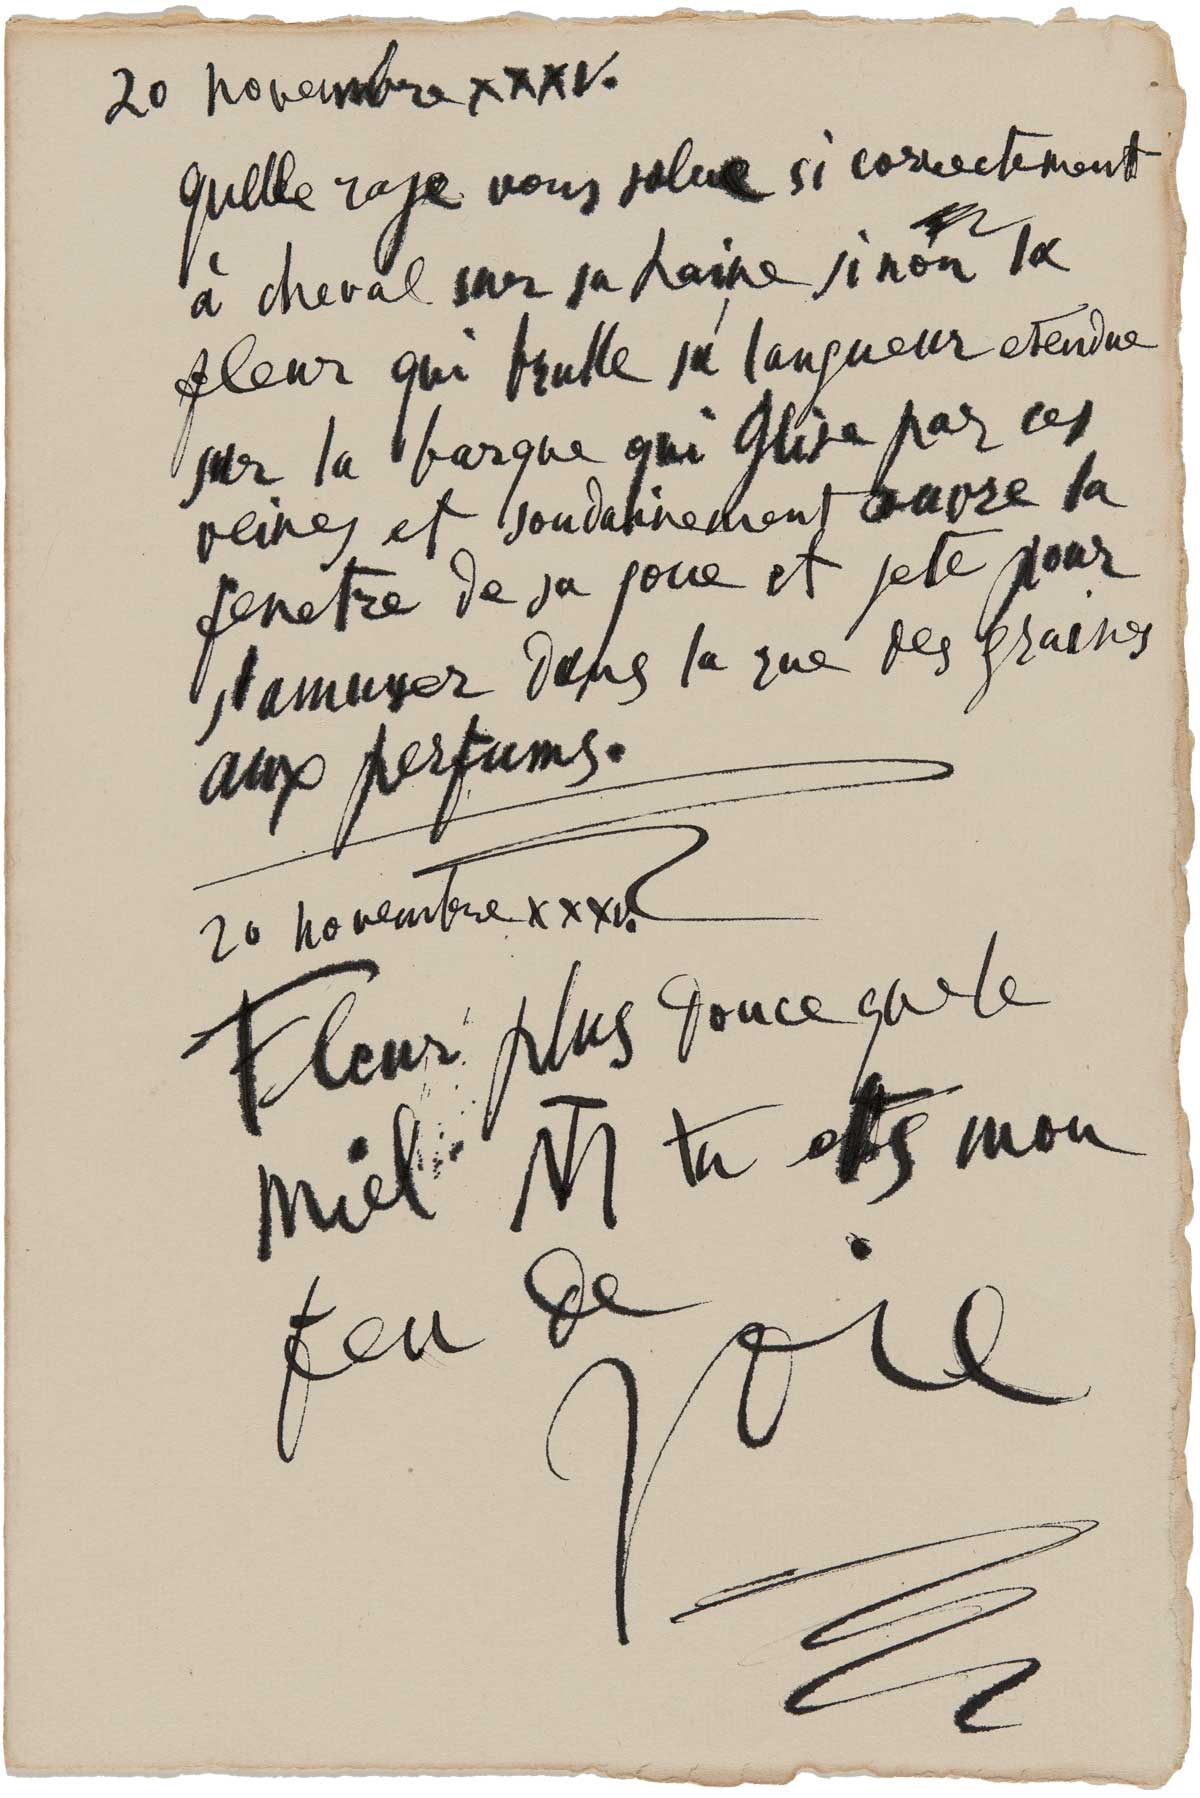 20 novembre XXXV.
quelle rage vous salue si correctement
à cheval sur sa haine sinon la
fleur qui brulle sa langueur etendue
sur la barque qui glise par ces
veines et soudainement ouvre la
fenetre de sa joue et jete pour
s'amuser dans la rue des graines
aux perfums.
20 novembre XXXV.
Fleur plus douce que le
miel MT tu es mon
feu de
joie